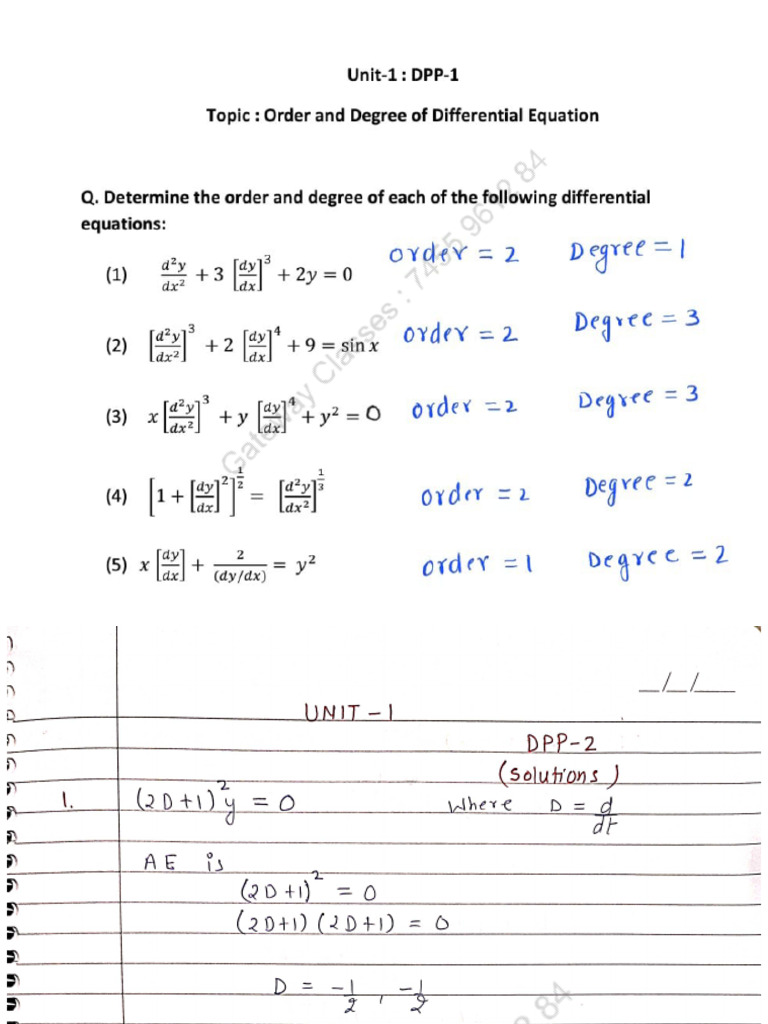 Unit-1 : DPP-1
Topic : Order and Degree of Differential Equation
Q. Determine the order and degree of each of the following differential
equations:
(1) d²y/dx² + 3 [dy/dx]³ + 2y = 0 order = 2 Degree = 1
(2) [d²y/dx²]³ + 2 [dy/dx]⁴ + 9 = sin x order = 2 Degree = 3
(3) x [d²y/dx²]³ + y [dy/dx]⁴ + y² = 0 order = 2 Degree = 3
(4) [1 + [dy/dx]²]^(1/2) = [d²y/dx²]^(1/3) order = 2 Degree = 2
(5) x [dy/dx] + 2/(dy/dx) = y² order = 1 Degree = 2
Gateway Classes : 7455 9612 84
__/__/__
UNIT - 1
DPP-2
(Solutions)
1. (2D+1)² y = 0 Where D = d/dt
AE is
(2D+1)² = 0
(2D+1) (2D+1) = 0
D = -1/2 , -1/2
84